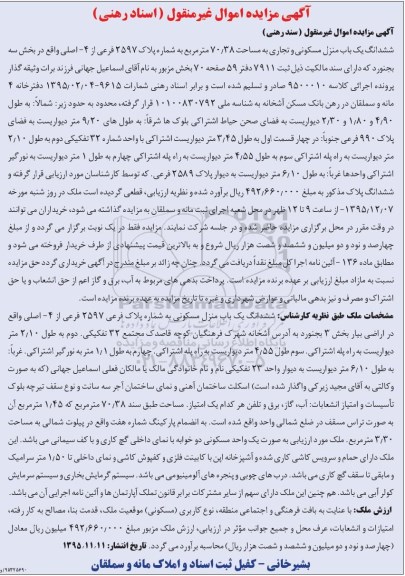 آگهی مزایده اموال غیرمنقول ( اسناد رهنی )
آگهی مزایده اموال غیرمنقول (سند رهنی)
ششدانگ یک باب منزل مسکونی و تجاری به مساحت ۷۰/۳۸ مترمربع به شماره پلاک ۲۵۹۷ فرعی از ۴- اصلی واقع در بخش سه
بجنورد که دارای سند مالکیت ذیل ثبت ۷۹۱۱ دفتر ۵۹ صفحه ۷۰ بخش مزبور به نام آقای اسماعیل جهانی فرزند برات وثیقه گذار
پرونده اجرائی کلاسه ۹۵۰۰۰۱۰ صادر و تسلیم شده است و برابر اسناد رهنی شمارات ۹۶۱۵-۱۳۹۵/۰۲/۰۴ دفترخانه ۴
مانه و سملقان در رهن بانک مسکن آشخانه به شناسه ملی ۱۰۱۰۰۸۳۰۷۹۲ قرار گرفته، محدود به حدود زیر: شمالاً: به طول
۴/۹۰ و ۱/۸۰ و ۲/۳۰ دیواریست به فضای صحن حیاط اشتراکی بلوک ها شرقاً: به طول های ۹/۲۰ متر دیواریست به فضای
پلاک ۹۹۰ فرعی جنوباً: در چهار قسمت اول به طول ۳/۴۵ متر دیواریست اشتراکی با واحد شماره ۳۲ تفکیکی دوم به طول ۲/۱۰
متر دیواریست به راه پله اشتراکی سوم به طول ۴/۵۵ متر دیواریست به راه پله اشتراکی چهارم به طول ۱ متر دیواریست به نورگیر
اشتراکی واحدها غرباً: به طول ۶/۱۰ متر دیواریست به دیوار پلاک ۲۵۸۹ فرعی. که توسط کارشناسان مورد ارزیابی قرار گرفته و
ششدانگ پلاک مذکور به مبلغ ۴۹۲/۶۶۰/۰۰۰ ریال برآورد شده و نظریه ارزیابی، قطعی گردیده است ملک در روز شنبه مورخه
۱۳۹۵/۱۲/۰۷- از ساعت ۹ تا ۱۲ ظهر در محل شعبه اجرای ثبت مانه و سملقان به مزایده گذاشته می شود، خریداران می توانند
در وقت مقرر در محل برگزاری مزایده حاضر شده و در جلسه شرکت نمایند. مزایده فقط در یک نوبت برگزار می گردد و از مبلغ
چهارصد و نود و دو میلیون و ششصد و شصت هزار ریال شروع و به بالاترین قیمت پیشنهادی از طرف خریدار فروخته می شود و
مطابق ماده ۱۳۶- آئین نامه اجرا کل مبلغ نقداً دریافت می گردد. چنان چه زائد بر مبلغ مندرج در آگهی خریداری گردد حق مزایده
نسبت به مازاد مبلغ ارزیابی بر عهده برنده مزایده است. پرداخت بدهی های مربوط به آب، برق و گاز اعم از حق انشعاب و یا حق
اشتراک و مصرف و نیز بدهی مالیاتی و عوارض شهرداری و غیره تا تاریخ مزایده به عهده برنده مزایده است.
مشخصات ملک طبق نظریه کارشناس: ششدانگ یک باب منزل مسکونی به شماره پلاک فرعی ۲۵۹۷ فرعی از ۴- اصلی واقع
در اراضی بیار بخش ۳ بجنورد به آدرس آشخانه شهرک فرهنگیان کوچه قاصدک مجتمع ۳۲ تفکیکی. دوم به طول ۲/۱۰ متر
دیواریست به راه پله اشتراکی. سوم طول ۴/۵۵ متر دیواریست به راه پله اشتراکی. چهارم به طول ۱/۱ متر به نور گیر اشتراکی. غرباً:
به طول ۶/۱۰ متر دیواریست به دیوار واحد ۲۳ تفکیکی نام و نام خانوادگی مالک یا مالکان فعلی اسماعیل جهانی (که به صورت
وکالتی به آقای مجید زیرکی واگذار شده است) اسکلت ساختمان آهنی و نمای ساختمان آجر سه سانت و نوع سقف تیرچه بلوک
تأسیسات و امتیاز انشعابات: آب، گاز، برق و تلفن هر کدام یک امتیاز. مساحت طبق سند ۷۰/۳۸ مترمربع که ۱/۴۵ مترمربع آن
به صورت تراس مسقف در ضلع شمالی واحد واقع شده است. به انضمام پارکینگ شماره هفت واقع در پیلوت شمالی به مساحت
۳/۳۰ مترمربع. ملک مورد ارزیابی به صورت یک واحد مسکونی دو خوابه با نمای داخلی گچ کاری و با کف سیمانی می باشد. این
ملک دارای حمام و سرویس کاشی کاری شده و آشپزخانه اپن با کابینت فلزی و کفپوش کاشی و نمای داخلی تا ۱/۵۰ متر سرامیک
و مابقی تا سقف گچ کاری می باشد. درب های چوبی و پنجره های آلومینیومی می باشد. سیستم گرمایش بخاری و سیستم سرمایش
کولر آبی می باشد. هم چنین این ملک دارای سهم از سایر مشترکات برابر قانون تملک آپارتمان ها و آئین نامه اجرایی آن می باشد.
ارزش ملک: با عنایت به بافت فرهنگی و اجتماعی منطقه، نوع کاربری (مسکونی) موقعیت ملک، قدمت بنا، مصالح به کار رفته،
امتیازات و انشعابات، عرف محل و جمیع جوانب مؤثر در ارزیابی، ارزش ملک مزبور مبلغ ۴۹۲/۶۶۰/۰۰۰ میلیون ریال معادل
(چهارصد و نود و دو میلیون و ششصد و شصت هزار ریال) محاسبه و برآورد می گردد. تاریخ انتشار: ۱۳۹۵.۱۱.۱۱
بشیرخانی - کفیل ثبت اسناد و املاک مانه و سملقان